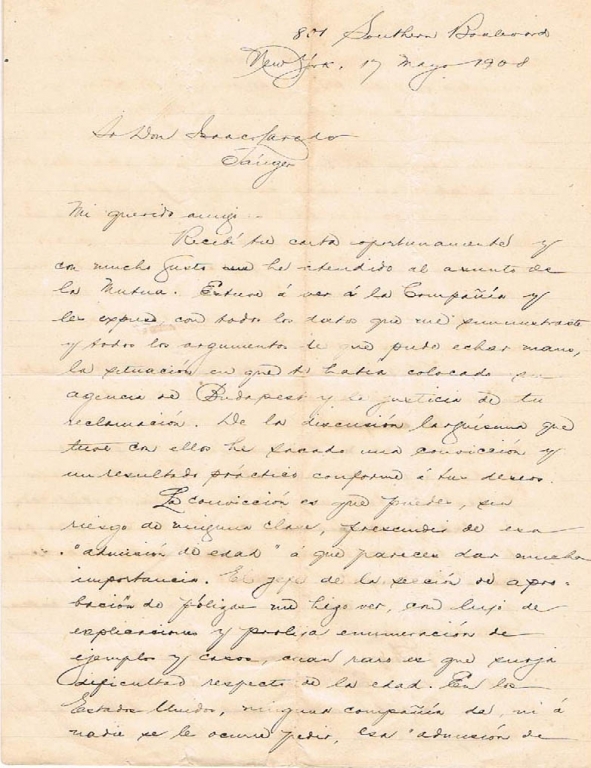 801 Southern Boulevard
New York, 17 Mayo 1908
Sr Don Isaac Laredo
Tánger
Mi querido amigo:
Recibí tu carta oportunamente y
con mucho gusto he atendido al asunto de
la Mutua. Estuve á ver á la Compañía y
les expuse con todos los datos que me suministraste
y todos los argumentos de que pude echar mano,
la situación en que te había colocado su
agencia de Budapest y la justicia de tu
reclamación. De la discusión larguísima que
tuve con ellos he sacado una convicción y
un resultado práctico conforme á tus deseos.
La convicción es que puedes, sin
riesgo de ninguna clase, prescindir de esa
"admisión de edad" á que pareces dar mucha
importancia. El jefe de la sección de apro-
bación de pólizas me hizo ver, con lujo de
explicaciones y prolija enumeración de
ejemplos y casos, cuan raro es que surja
dificultad respecto de la edad. En los
Estados Unidos, ninguna compañía da, ni á
nadie se le ocurre pedir, esa "admisión de